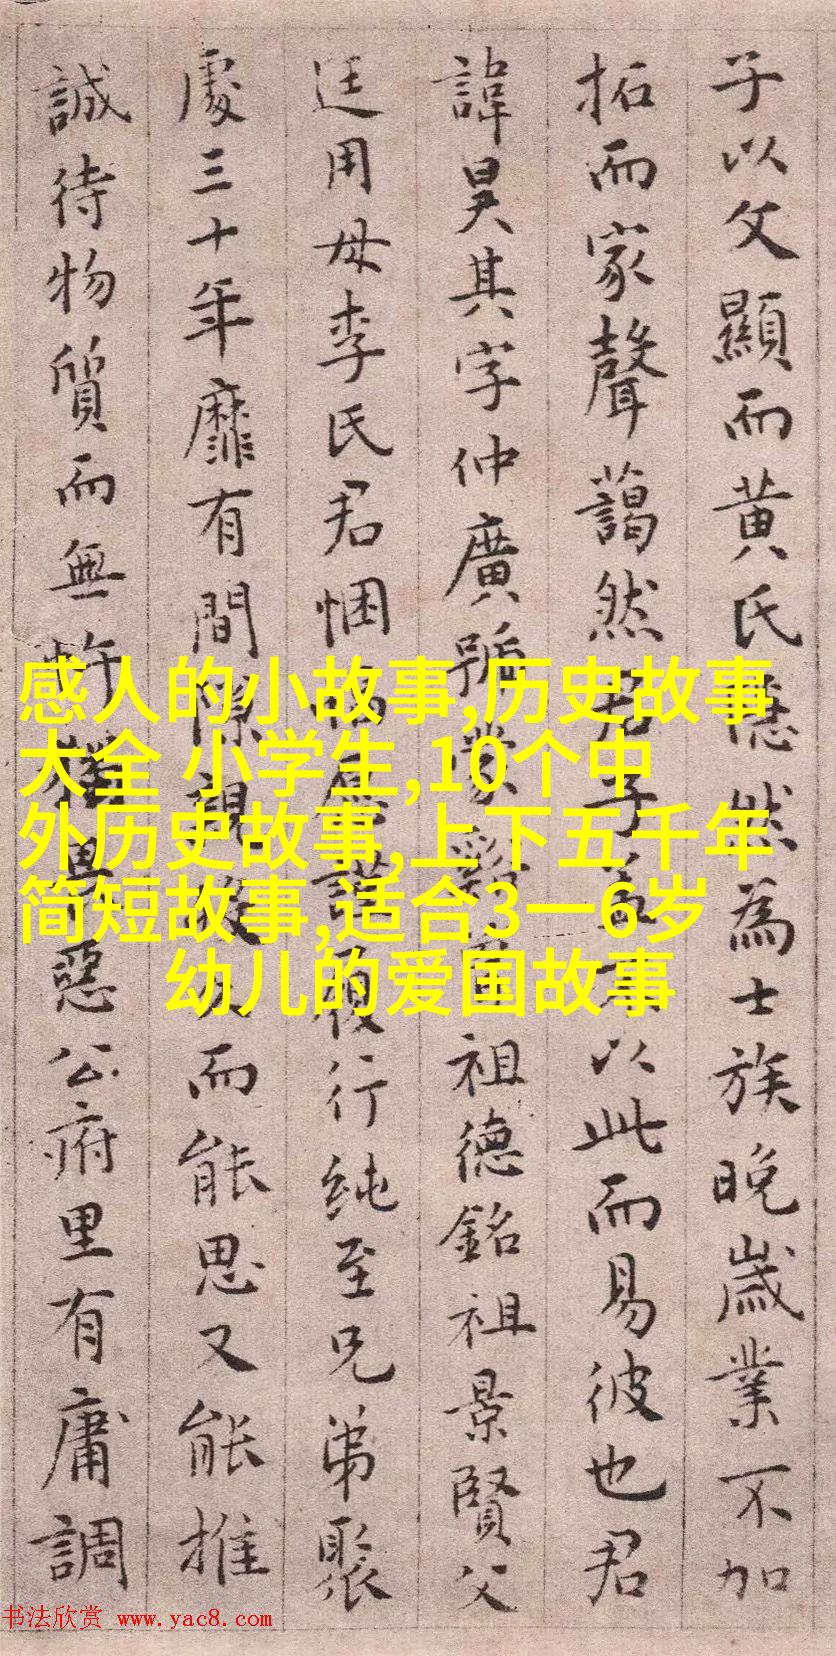 子以文顯而黄氏隱然為士族晚歲業不加
拓而家聲藹然君子蓋不以此而易彼也君
諱昊其字仲廣號蒙祖德銘祖景賢父
廷用母李氏君悃愊履行純至兄弟聚
處三十年靡有間隙視而能思又能推
誠待物質而無忤惡公府里有庸調
感人的小故事,历史故事
大全 小学生,10个中
外历史故事,上下五千年
简短故事,适合3一6岁
幼儿的爱国故事
书法欣赏 www.yac8.com